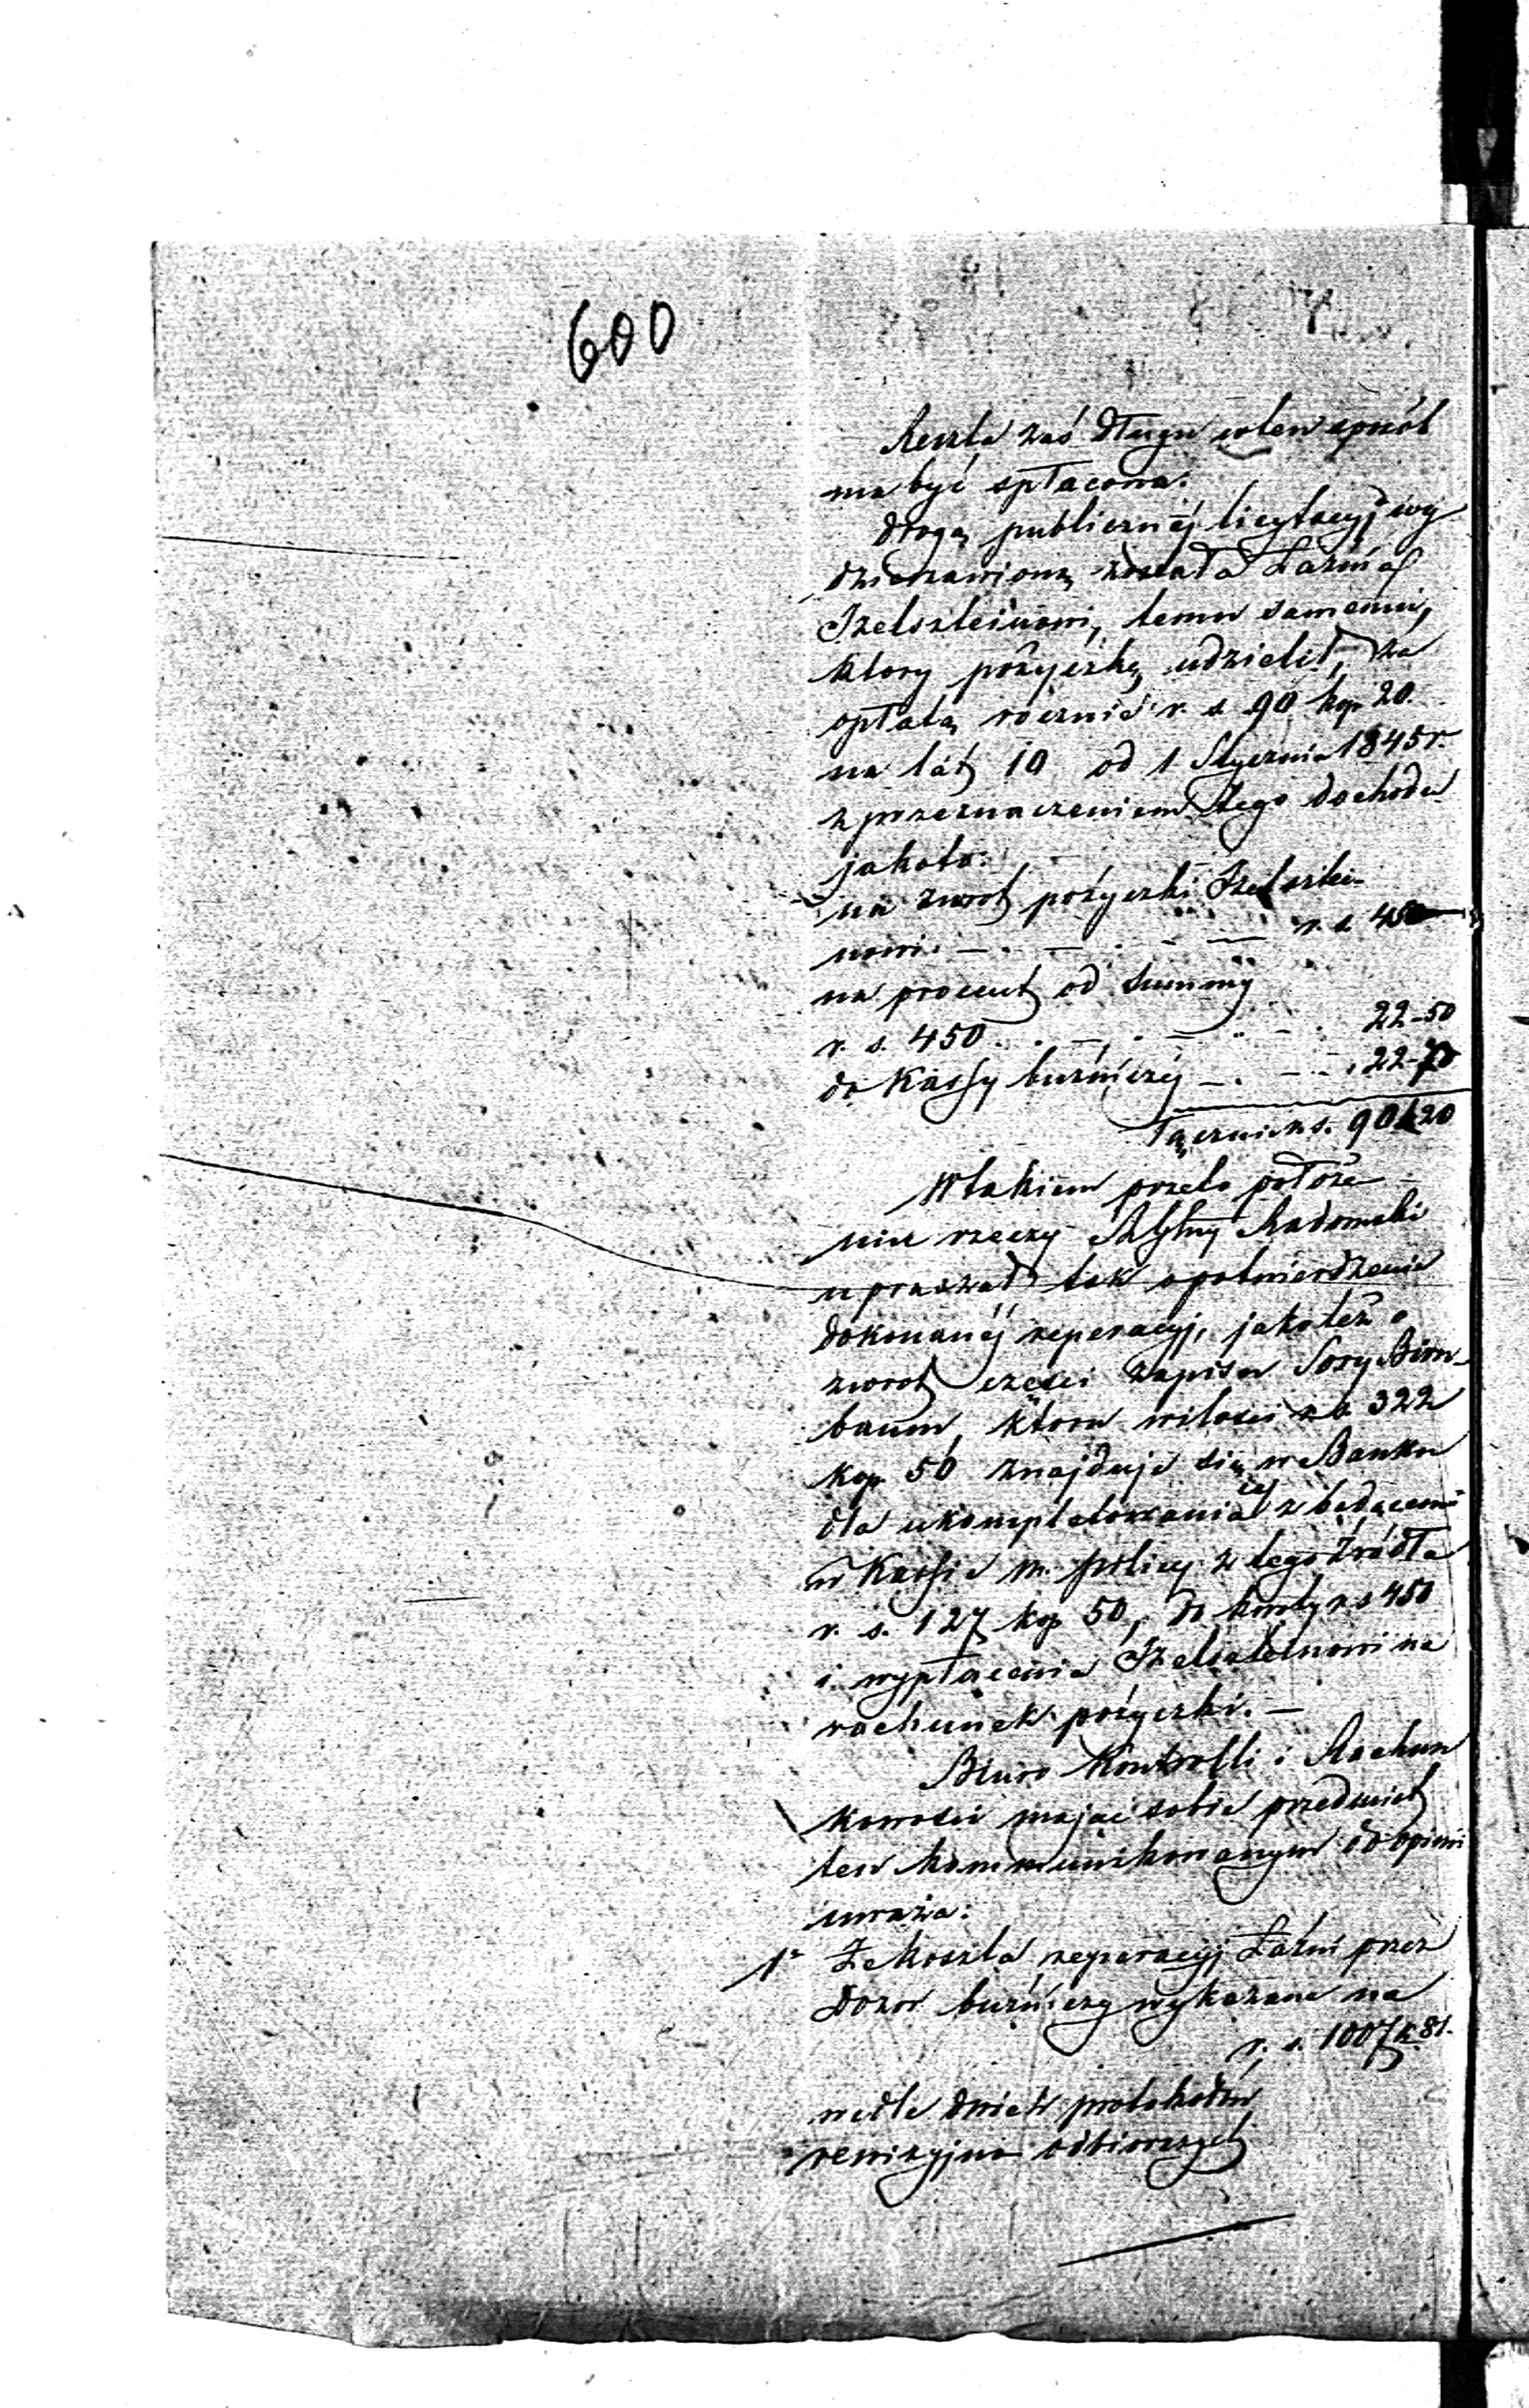 600
Reszta zaś długu w ten sposób
ma być spłacona.
drogą publicznéj licytacyj wy-
dzierżawioną została Łaźnia
Izelszteinowi, temu samemu,
ktory pożyczkę udzielił, za
opłatą rocznie r. s. 90 kop 20.
na lat 10 od 1 Stycznia 1845 r.
z przeznaczeniem tego dochodu
jakoto:
na zwrot pożyczki Izelsztei-
nowi. — . — . - — r. s. 45
na procent od Summy
r. s. 450 . . — . — . . - . 22-50
do Kassy buźniczéj — . - - . 22-70
Łącznie rs. 90 k 20
W takiem przeto położe-
niu rzeczy Radomski
upraszał tak o potwierdzenie
dokonanéj reperacyj, jakoteż o
zwrot części zapisu Sory Birn-
baum, ktora w ilości rs. 322
kop 50 znajduje się w Banku
dla ukompletowania iéj z będącemi
w Kassie m. z tego źródła
r. s. 127 kop 50, do kwoty rs 450
i wypłacenia Izelszteinowi na
rachunek pożyczki. —
Biuro Kontrolli i Rachun
kowości mając sobie przedmiot
ten kommunikowanym do opinii
uważa:
1º Że koszta reperacyj Łaźni przez
Dozor buźniczy wykazane na
r. s. 1007 k. 81.
wedle dwóch protokołów
rewizyjno odbiorczych